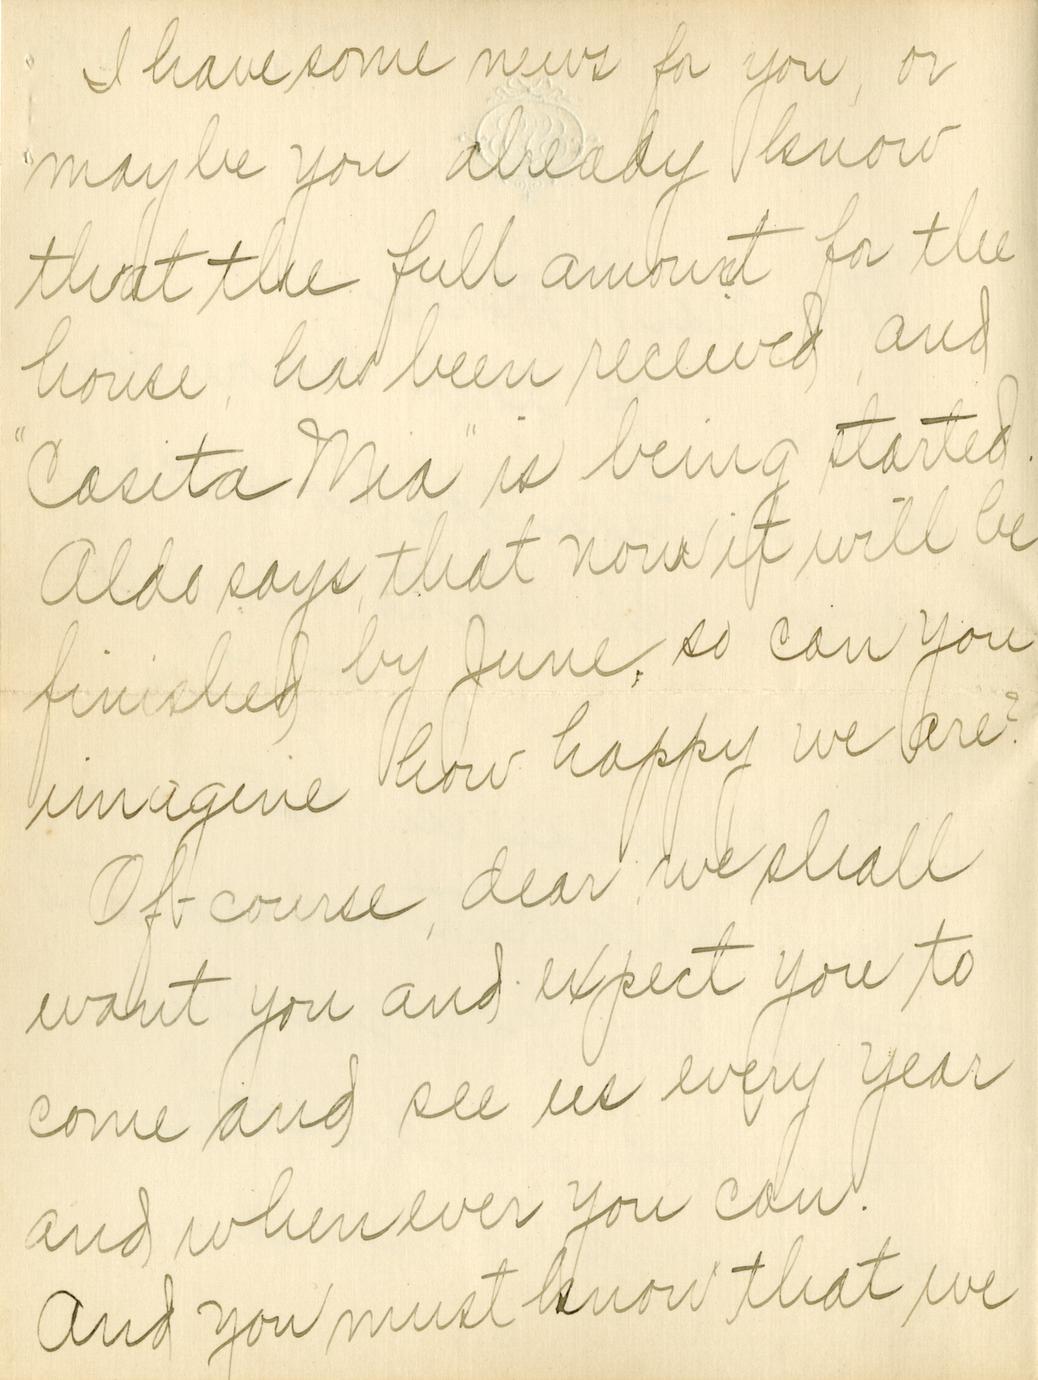 I have some news for you, or
maybe you already know
that the full amount for the
house, has been received, and
"Casita Mia" is being started.
Aldo says, that now it will be
finished by June, so can you
imagine how happy we are?
Of course, dear, we shall
want you and expect you to
come and see us every year
and whenever you can.
And you must know that we